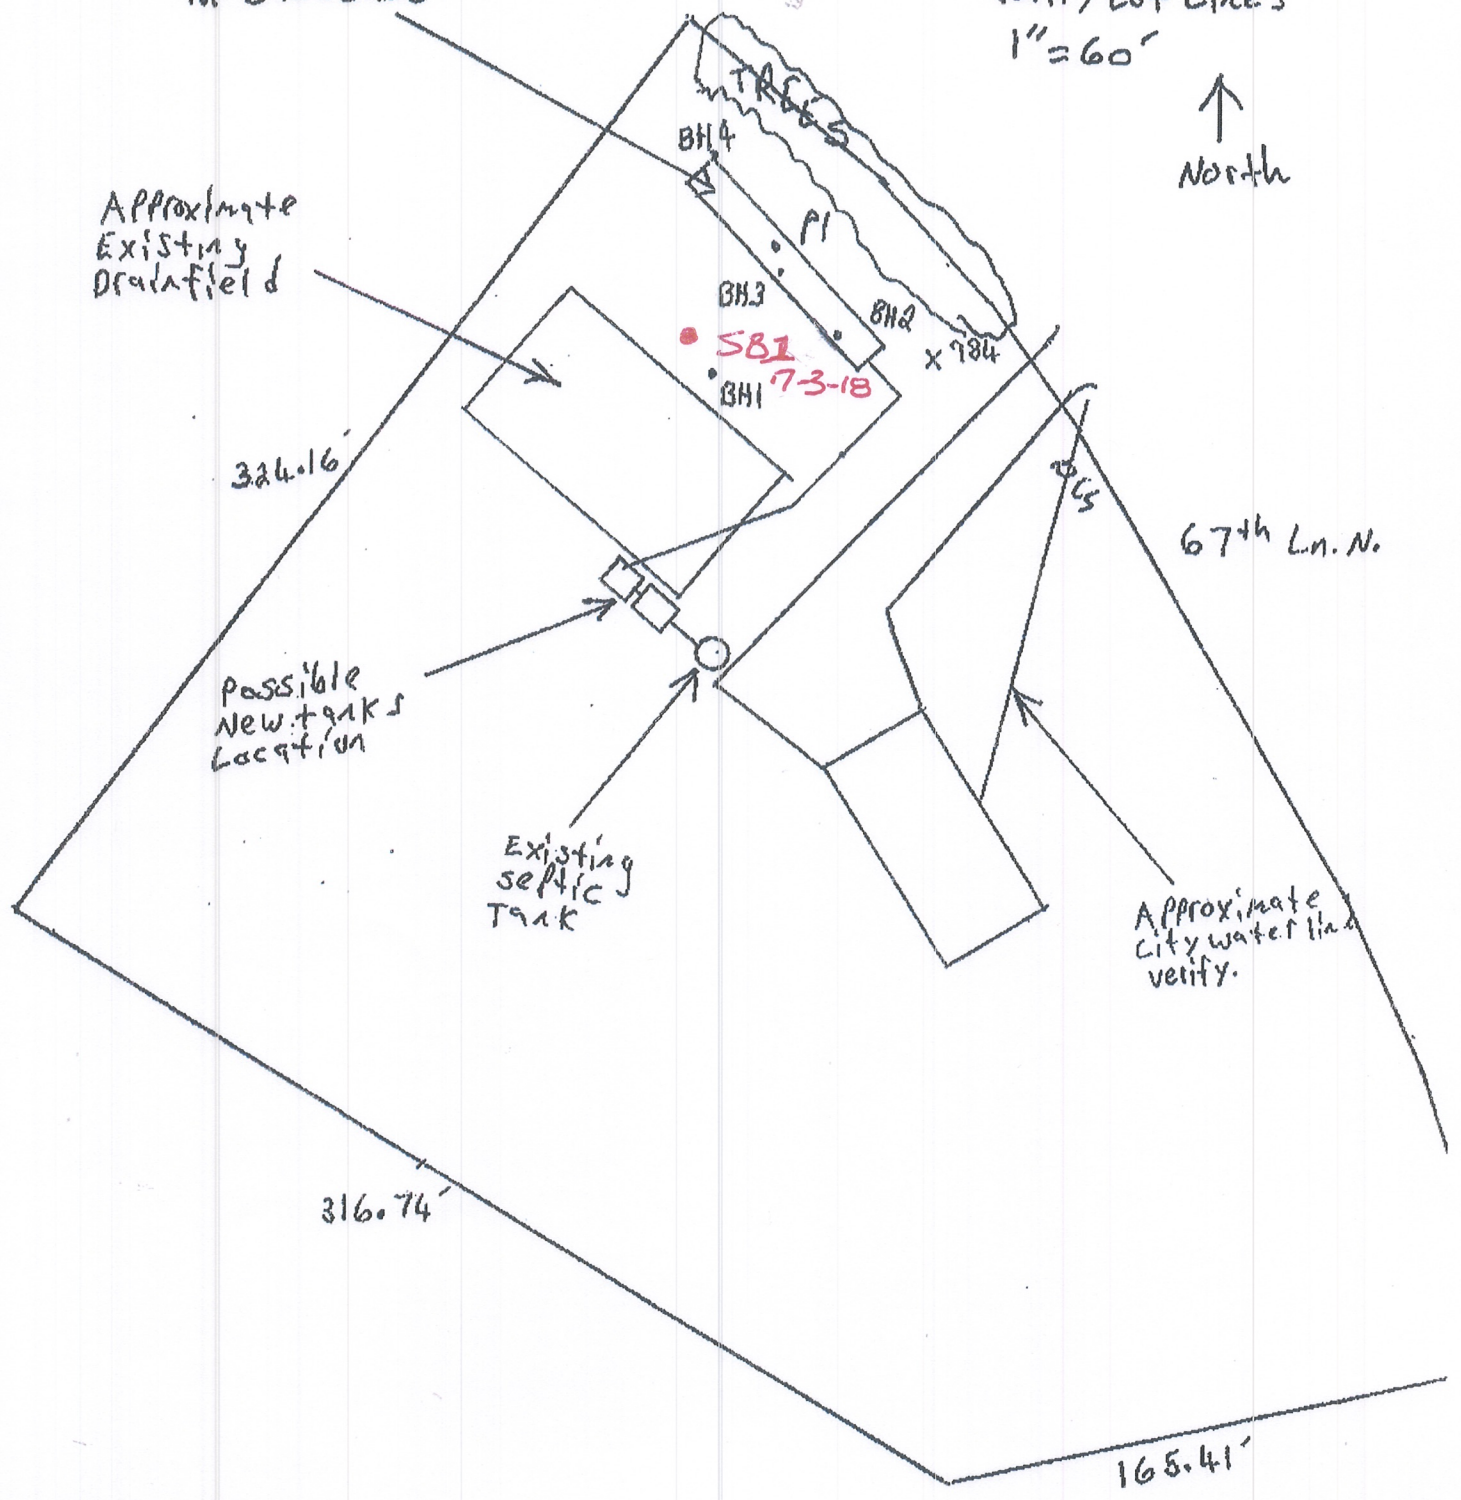 Lot Lines
1"=60'
North
TREES
BH4
P1
BH3
BH2
SB1
7-3-18
BH1
x 984
Approximate
Existing
Drainfield
324.16'
67th Ln. N.
Possible
New tanks
Location
Existing
septic
Tank
Approximate
City water line
verify.
316.74'
165.41'